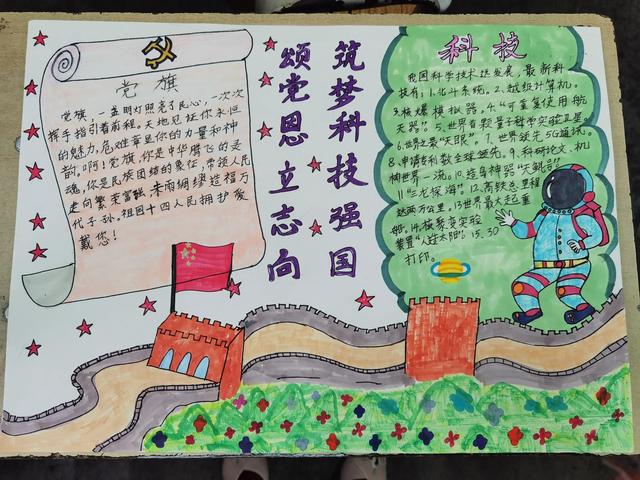 党旗
党旗，一盏明灯照亮了民心，一次次
挥手指引着前程。天地见证你永恒
的魅力，危难彰显你的力量和神
韵。啊！党旗，你是中华磨石的灵
魂，你是民族团结的象征，带领人民
走向繁荣富强，未雨绸缪造福万
代子孙。祖国十四人民拥护爱
戴您！
颂党恩 立志向
筑梦科技强国
科技
我国科学技术迅发展，最新科
技有：1.北斗系统。2.超级计算机。
3.核爆模拟器。4."可重复使用航
天器"5.世界首颗量子科学实验卫星。
6.世界之最"天眼"。7.世界领先5G通讯。
8.申请专利数全球领先。9.科研论文、机
构世界一流。10.造岛神器"天鲲号"
11"三龙探海"。12.高铁总里程
达两万公里。13世界最大起重
船。14.核聚变实验
装置"人造太阳"。15.3D
打印。